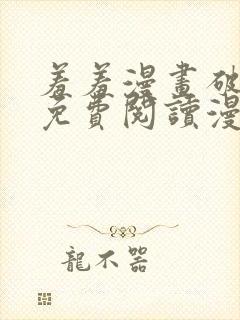 羞羞漫畫破
免費閱讀漫
龍不器